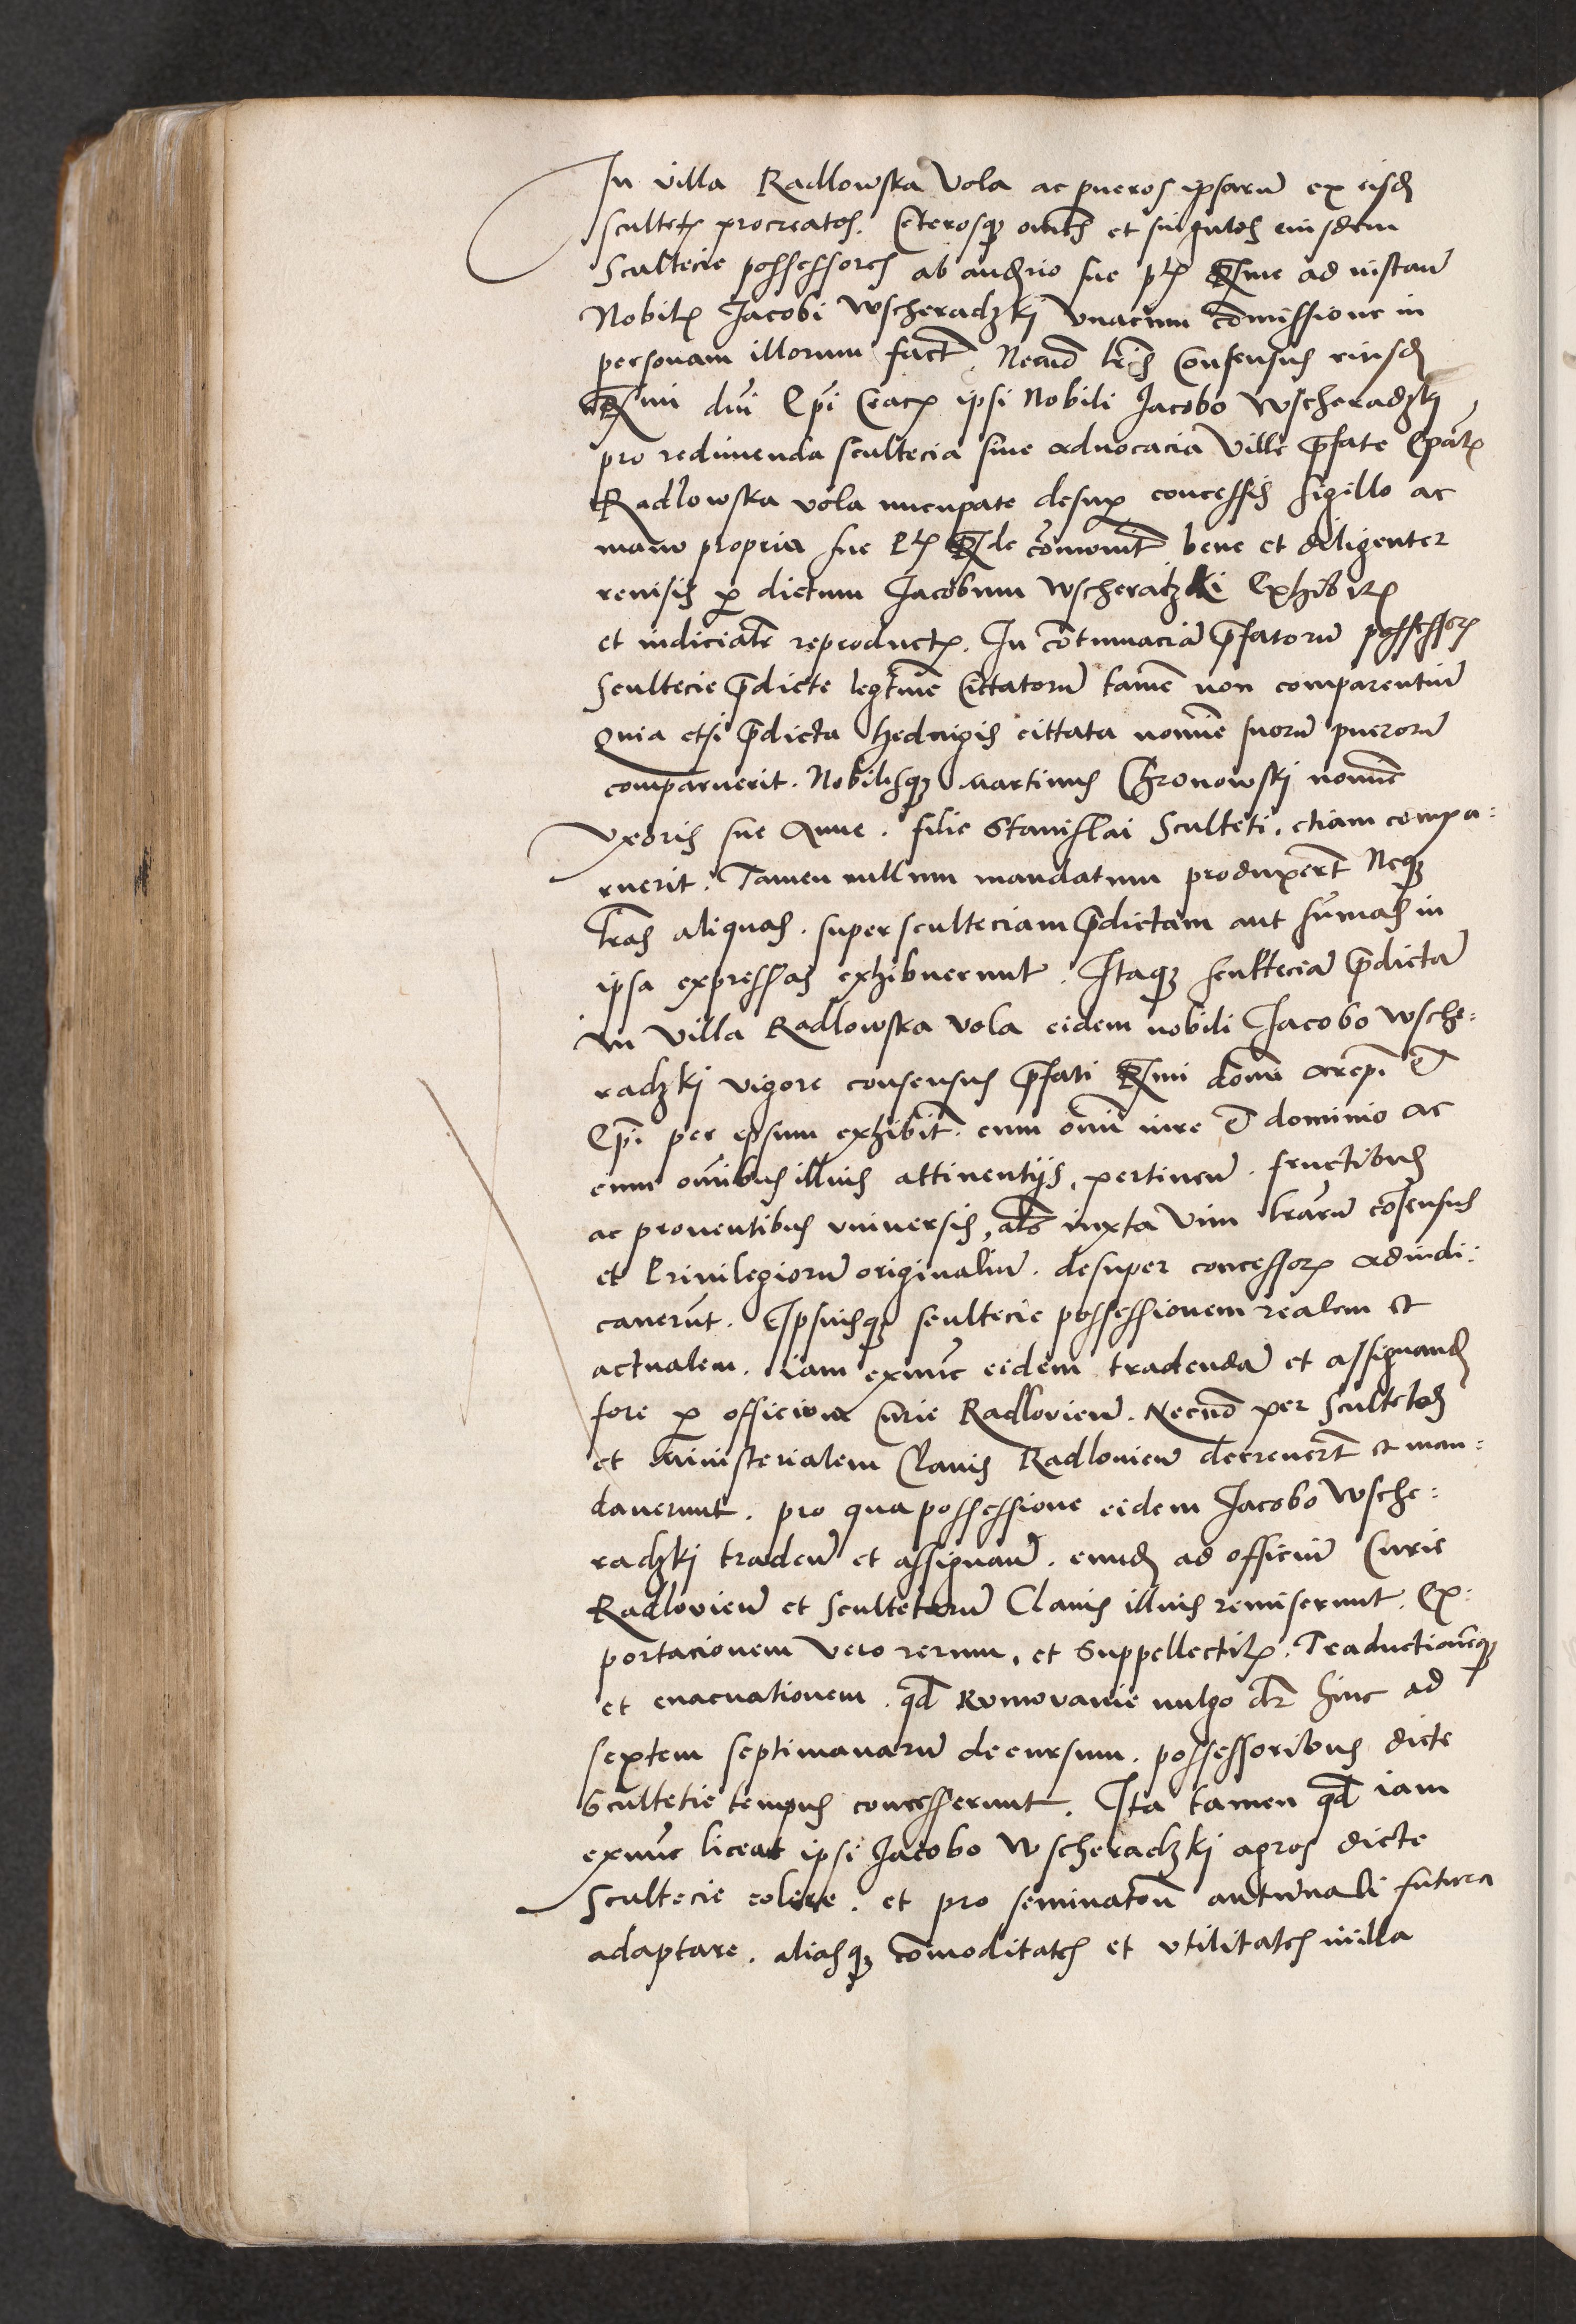 In villa Radlowska Vola ac pueros ipsarū ex eisđ
scultetꝭ procreatos. Ceterosqꝫ om̄es et singulos eiusdem
Scultecie possessores ab audr̄io sue p̄tꝭ Rx̄me ad instan̄
Nobilꝭ Jacobi Wscheradzkj vnacum com̄issione in
personam illorum fact̄. Necnō l̄ris Consensus eiusđ
Rx̄mi dn̄i Ep̄i Cracꝭ ipsi Nobili Jacobo Wscheradzkj
pro redimenda scultecia siue aduocacia Ville p̄fate Ep̄alꝭ
Radlowska vola nuncupate desuꝑ concessis sigillo ac
manu propria sue P̄tꝭ Rx̄de com̄unit̄ bene et diligenter
reuisis ꝑ dictum Jacobum Wscheradzki Exhibitꝭ
et iudicialr̄ reproductꝭ. In cōtumaciā p̄fatorū possessorꝭ
Scultecie p̄dicte legit̄ime Cittatorū tamē non comparentiū
Quia etsi p̄dicta Hedwigis cittata nomīe suorū puerorū
comparuerit. Nobilisqꝫ Martinus Chronowski nomīe
Vxoris sue Anne. filie Stanislai Sculteti. etiam compa:
ruerit. Tamen nullum mandatum produxer̄t Neqꝫ
l̄ras aliquas. super sculteciam p̄dictam aut sum̄as in
ipsa expressas exhibuerunt. Itaqꝫ sculteciā p̄dictā
in Villa Radlowska vola eidem nobili Jacobo Wsche:
radzkj vigore consensus p̄fati Rx̄mi domī
Ep̄i per ipsum exhibit̄. cum om̄i iure et dominio ac
cum om̄ibus illius attinentijs, pertinen̄. fructibus
ac prouentibus vniuersis, al̄s iuxta Vim l̄rarū cōsensus
et Priuilegiorū originaliū. desuper concessorꝭ adiudi:
cauerūt. Ipsiusqꝫ scultecie possessionem realem et
actualem. iam exnūc eidem tradendā et assignanđ
fore ꝑ officium Curie Radlovien̄. Necnō per Scultetos
et ministerialem Clauis Radlouien̄ decreuer̄t et man:
dauerunt. pro qua possessione eidem Jacobo Wsche:
radzkj traden̄ et assignan̄. eunđ ad officiū Curie
Radlovien̄ et Scultetorū Clauis illius remiserunt. Ex:
portacionem vero rerum, et Suppellectilꝭ. Traductionēqꝫ
et euacuationem. qđ Rvmovanie vulgo dr̄ hinc ad
septem septimanarū decursum. possessoribus dicte
Scultetie tempus concesserunt. Ita tamen qđ iam
exnūc liceat ipsi Jacobo Wscheradzkj agros dicte
Scultecie colere. et pro seminatōn̄ autūnali futura
adaptare. aliasqꝫ com̄oditates et vtilitates in illa